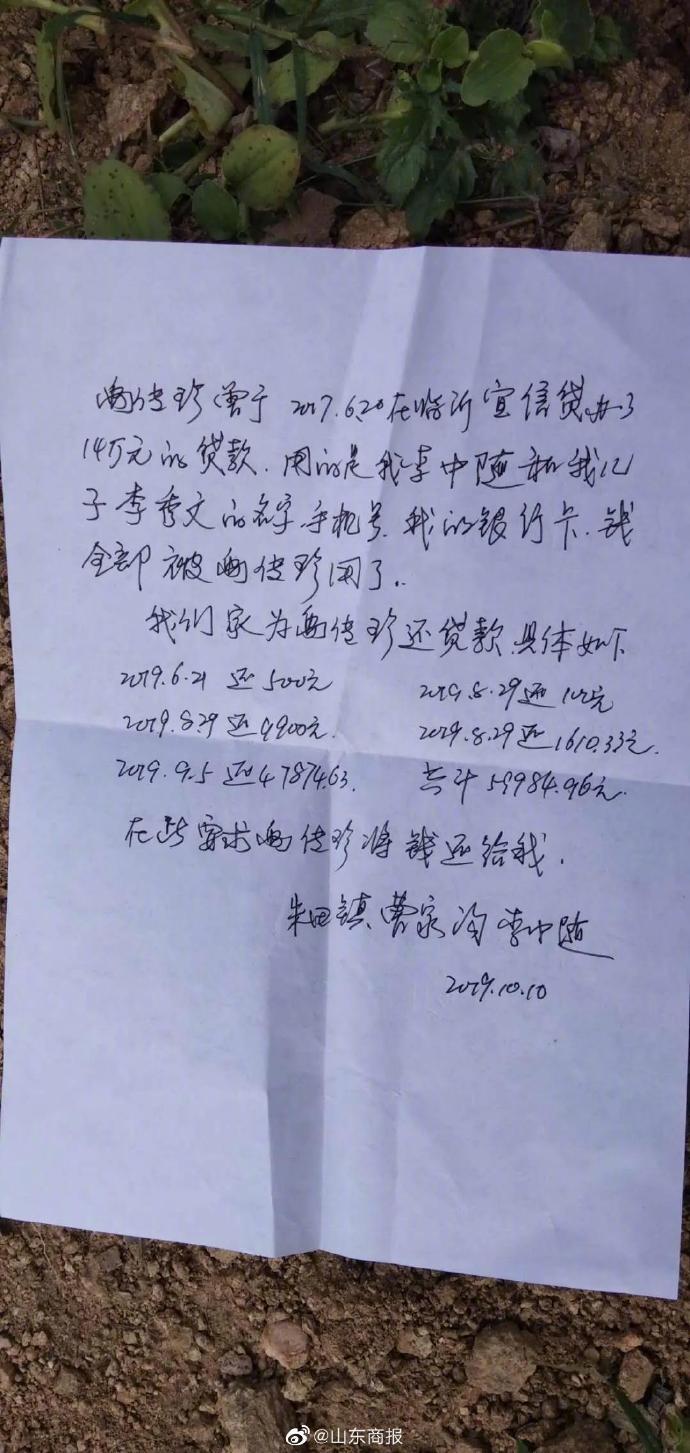 曾于 2017.6.20在临沂宜信贷办了
14万元的贷款.用的是我李中随和我儿
子李秀文的名字.手机号.我的银行卡.钱
全部被用了.
我们家为还贷款.具体如下
2019.6.21 还500元 2019.8.29还100元
2019.8.29 还9900元. 2019.8.29还1610.33元.
2019.9.5 还47874.63. 共计59984.96元.
在此要求将钱还给我.
朱田镇曹家沟 李中随
2019.10.10
@山东商报